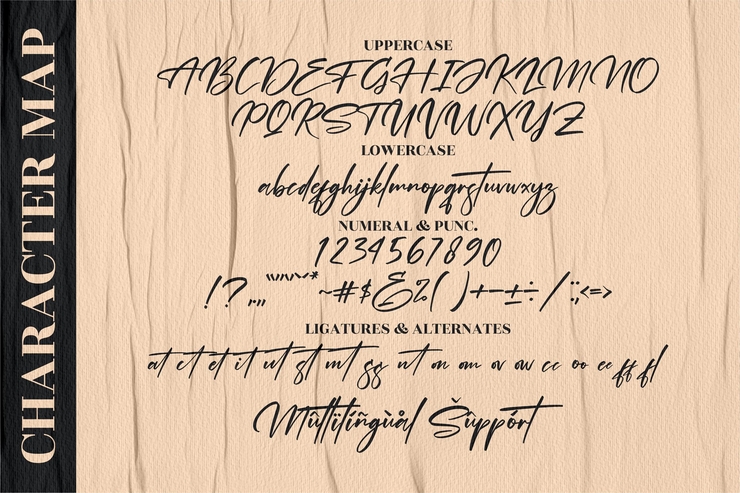 CHARACTER MAP
UPPERCASE
ABCDEFGHIJKLMNO
PQRSTUVWXYZ
LOWERCASE
abcdefghijklmnopqrstuvwxyz
NUMERAL & PUNC.
1234567890
!? ~#$&%()+-±÷/:;<=>
LIGATURES & ALTERNATES
at ct et it ut st mt ss nt on om ov ow cc oo ee ff fl
Mûltïlíñgùål Šûppórt